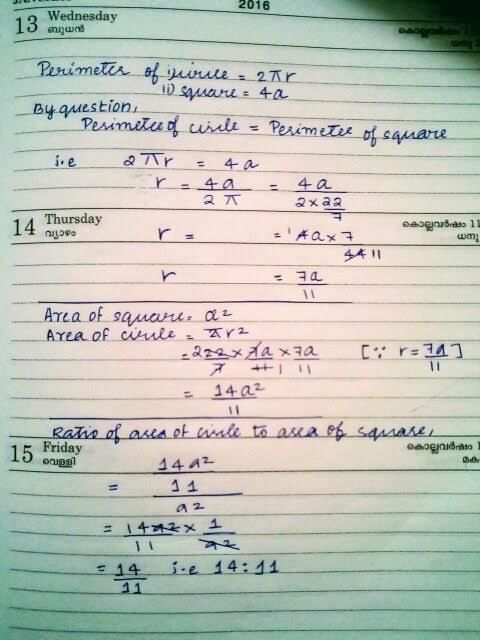 2016
13 Wednesday
ബുധൻ
Perimeter of i) circle = 2πr
ii) square = 4a
By question,
Perimetee of circle = Perimetee of square
i.e 2πr = 4a
r = 4a/2π = 4a/(2×22/7)
14 Thursday
വ്യാഴം
കൊല്ലവർഷം 11
ധനു
r = = 4a×7/44 11
r = 7a/11
Area of square = a²
Area of circle = πr²
= 222/7 × 7a/11 1 × 7a/11 [∵ r = 7a/11]
= 14a²/11
Ratio of area of circle to area of square,
15 Friday
വെള്ളി
കൊല്ലവർഷം 1
മക
= (14a²/11)/a²
= 14a²/11 × 1/a²
= 14/11 i.e 14:11